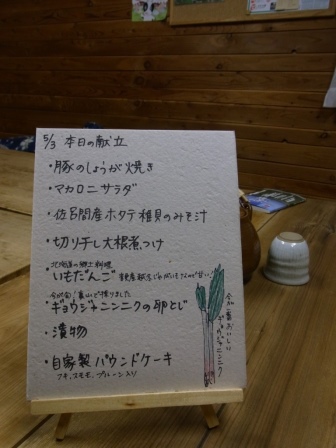 5/3 本日の献立
・豚のしょうが焼き
・マカロニサラダ
・佐呂間産ホタテ稚貝のみそ汁
・切り干し大根煮つけ
北海道の郷土料理
・いもだんご
今が旬!裏山で採りました
・ギョウジャニンニクの卵とじ
・漬物
・自家製パウンドケーキ
フキ、スモモ、プルーン入り
今が一番おいしい
ギョウジャニンニク